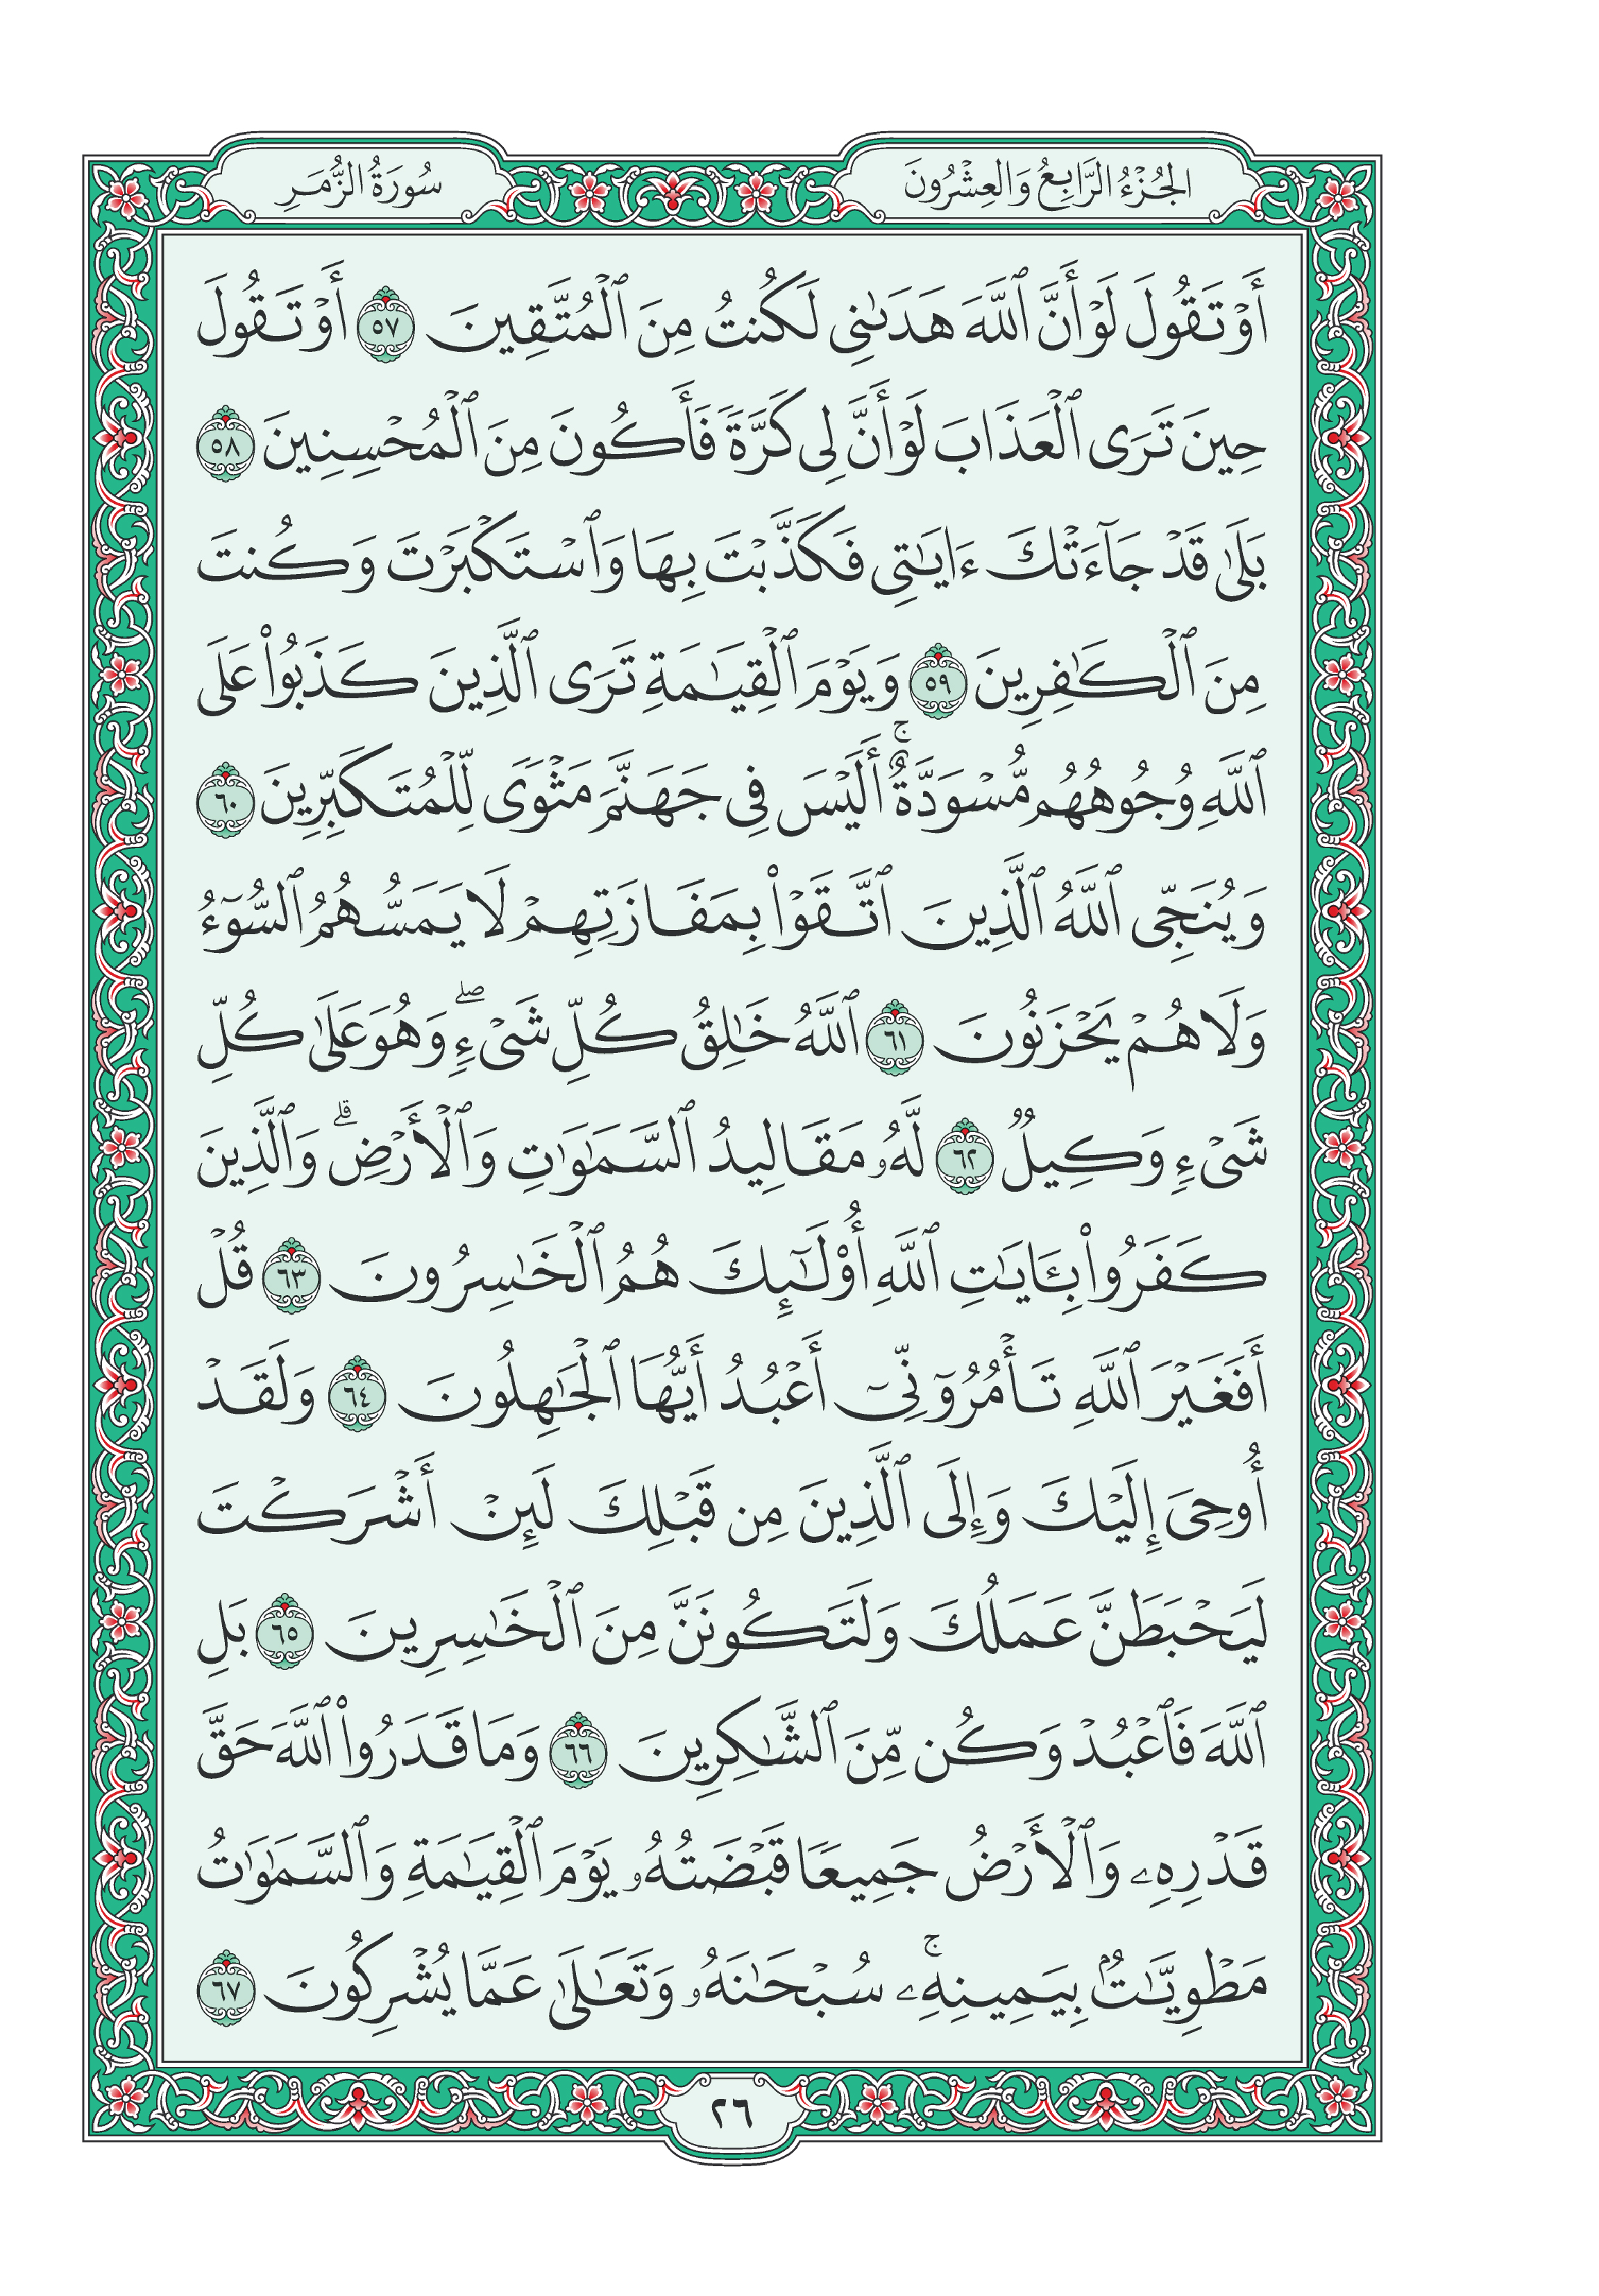 الجُزْءُ الرَّابِعُ وَالعِشْرُونَ
سُورَةُ الزُّمَرِ
أَوۡ تَقُولَ لَوۡ أَنَّ ٱللَّهَ هَدَىٰنِي لَكُنتُ مِنَ ٱلۡمُتَّقِينَ ٥٧ أَوۡ تَقُولَ
حِينَ تَرَى ٱلۡعَذَابَ لَوۡ أَنَّ لِي كَرَّةٗ فَأَكُونَ مِنَ ٱلۡمُحۡسِنِينَ ٥٨
بَلَىٰ قَدۡ جَآءَتۡكَ ءَايَٰتِي فَكَذَّبۡتَ بِهَا وَٱسۡتَكۡبَرۡتَ وَكُنتَ
مِنَ ٱلۡكَٰفِرِينَ ٥٩ وَيَوۡمَ ٱلۡقِيَٰمَةِ تَرَى ٱلَّذِينَ كَذَبُواْ عَلَى
ٱللَّهِ وُجُوهُهُم مُّسۡوَدَّةٌۚ أَلَيۡسَ فِي جَهَنَّمَ مَثۡوٗى لِّلۡمُتَكَبِّرِينَ ٦٠
وَيُنَجِّي ٱللَّهُ ٱلَّذِينَ ٱتَّقَوۡاْ بِمَفَازَتِهِمۡ لَا يَمَسُّهُمُ ٱلسُّوٓءُ
وَلَا هُمۡ يَحۡزَنُونَ ٦١ ٱللَّهُ خَٰلِقُ كُلِّ شَيۡءٖۖ وَهُوَ عَلَىٰ كُلِّ
شَيۡءٖ وَكِيلٞ ٦٢ لَّهُۥ مَقَالِيدُ ٱلسَّمَٰوَٰتِ وَٱلۡأَرۡضِۗ وَٱلَّذِينَ
كَفَرُواْ بِـَٔايَٰتِ ٱللَّهِ أُوْلَٰٓئِكَ هُمُ ٱلۡخَٰسِرُونَ ٦٣ قُلۡ
أَفَغَيۡرَ ٱللَّهِ تَأۡمُرُوٓنِّيٓ أَعۡبُدُ أَيُّهَا ٱلۡجَٰهِلُونَ ٦٤ وَلَقَدۡ
أُوحِيَ إِلَيۡكَ وَإِلَى ٱلَّذِينَ مِن قَبۡلِكَ لَئِنۡ أَشۡرَكۡتَ
لَيَحۡبَطَنَّ عَمَلُكَ وَلَتَكُونَنَّ مِنَ ٱلۡخَٰسِرِينَ ٦٥ بَلِ
ٱللَّهَ فَٱعۡبُدۡ وَكُن مِّنَ ٱلشَّٰكِرِينَ ٦٦ وَمَا قَدَرُواْ ٱللَّهَ حَقَّ
قَدۡرِهِۦ وَٱلۡأَرۡضُ جَمِيعٗا قَبۡضَتُهُۥ يَوۡمَ ٱلۡقِيَٰمَةِ وَٱلسَّمَٰوَٰتُ
مَطۡوِيَّٰتُۢ بِيَمِينِهِۦۚ سُبۡحَٰنَهُۥ وَتَعَٰلَىٰ عَمَّا يُشۡرِكُونَ ٦٧
٢٦